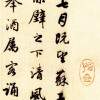 七月既望蘇
赤壁之下清風
舉酒屬客誦